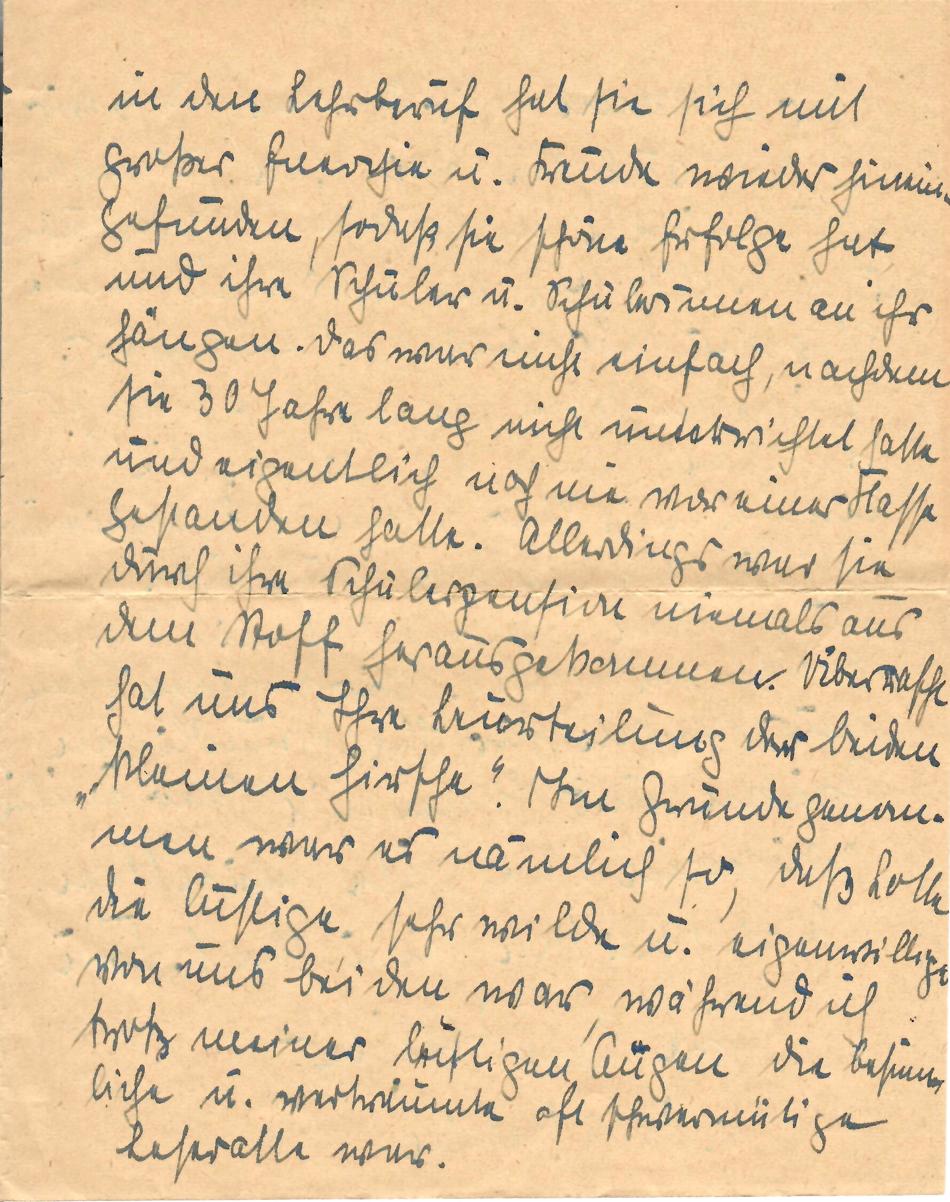 in den Lehrberuf hat sie sich mit
großer Energie u. Freude wieder hinein-
gefunden, sodaß sie schöne Erfolge hat
und ihre Schüler u. Schülerinnen an ihr
hängen. Das war nicht einfach, nachdem
sie 30 Jahre lang nicht unterrichtet hatte
und eigentlich noch nie vor einer Klasse
gestanden hatte. Allerdings war sie
durch ihre Schülerpension niemals aus
dem Stoff herausgekommen. Überrascht
hat uns Ihre Beurteilung der beiden
„kleinen Hirsche“. Im Grunde genom-
men war es nämlich so, daß Lotte
die lustige sehr wilde u. eigenwillige
von uns beiden war, während ich
trotz meiner lustigen Augen die besinn-
liche u. verträumte oft schwermütige
Leseratte war.